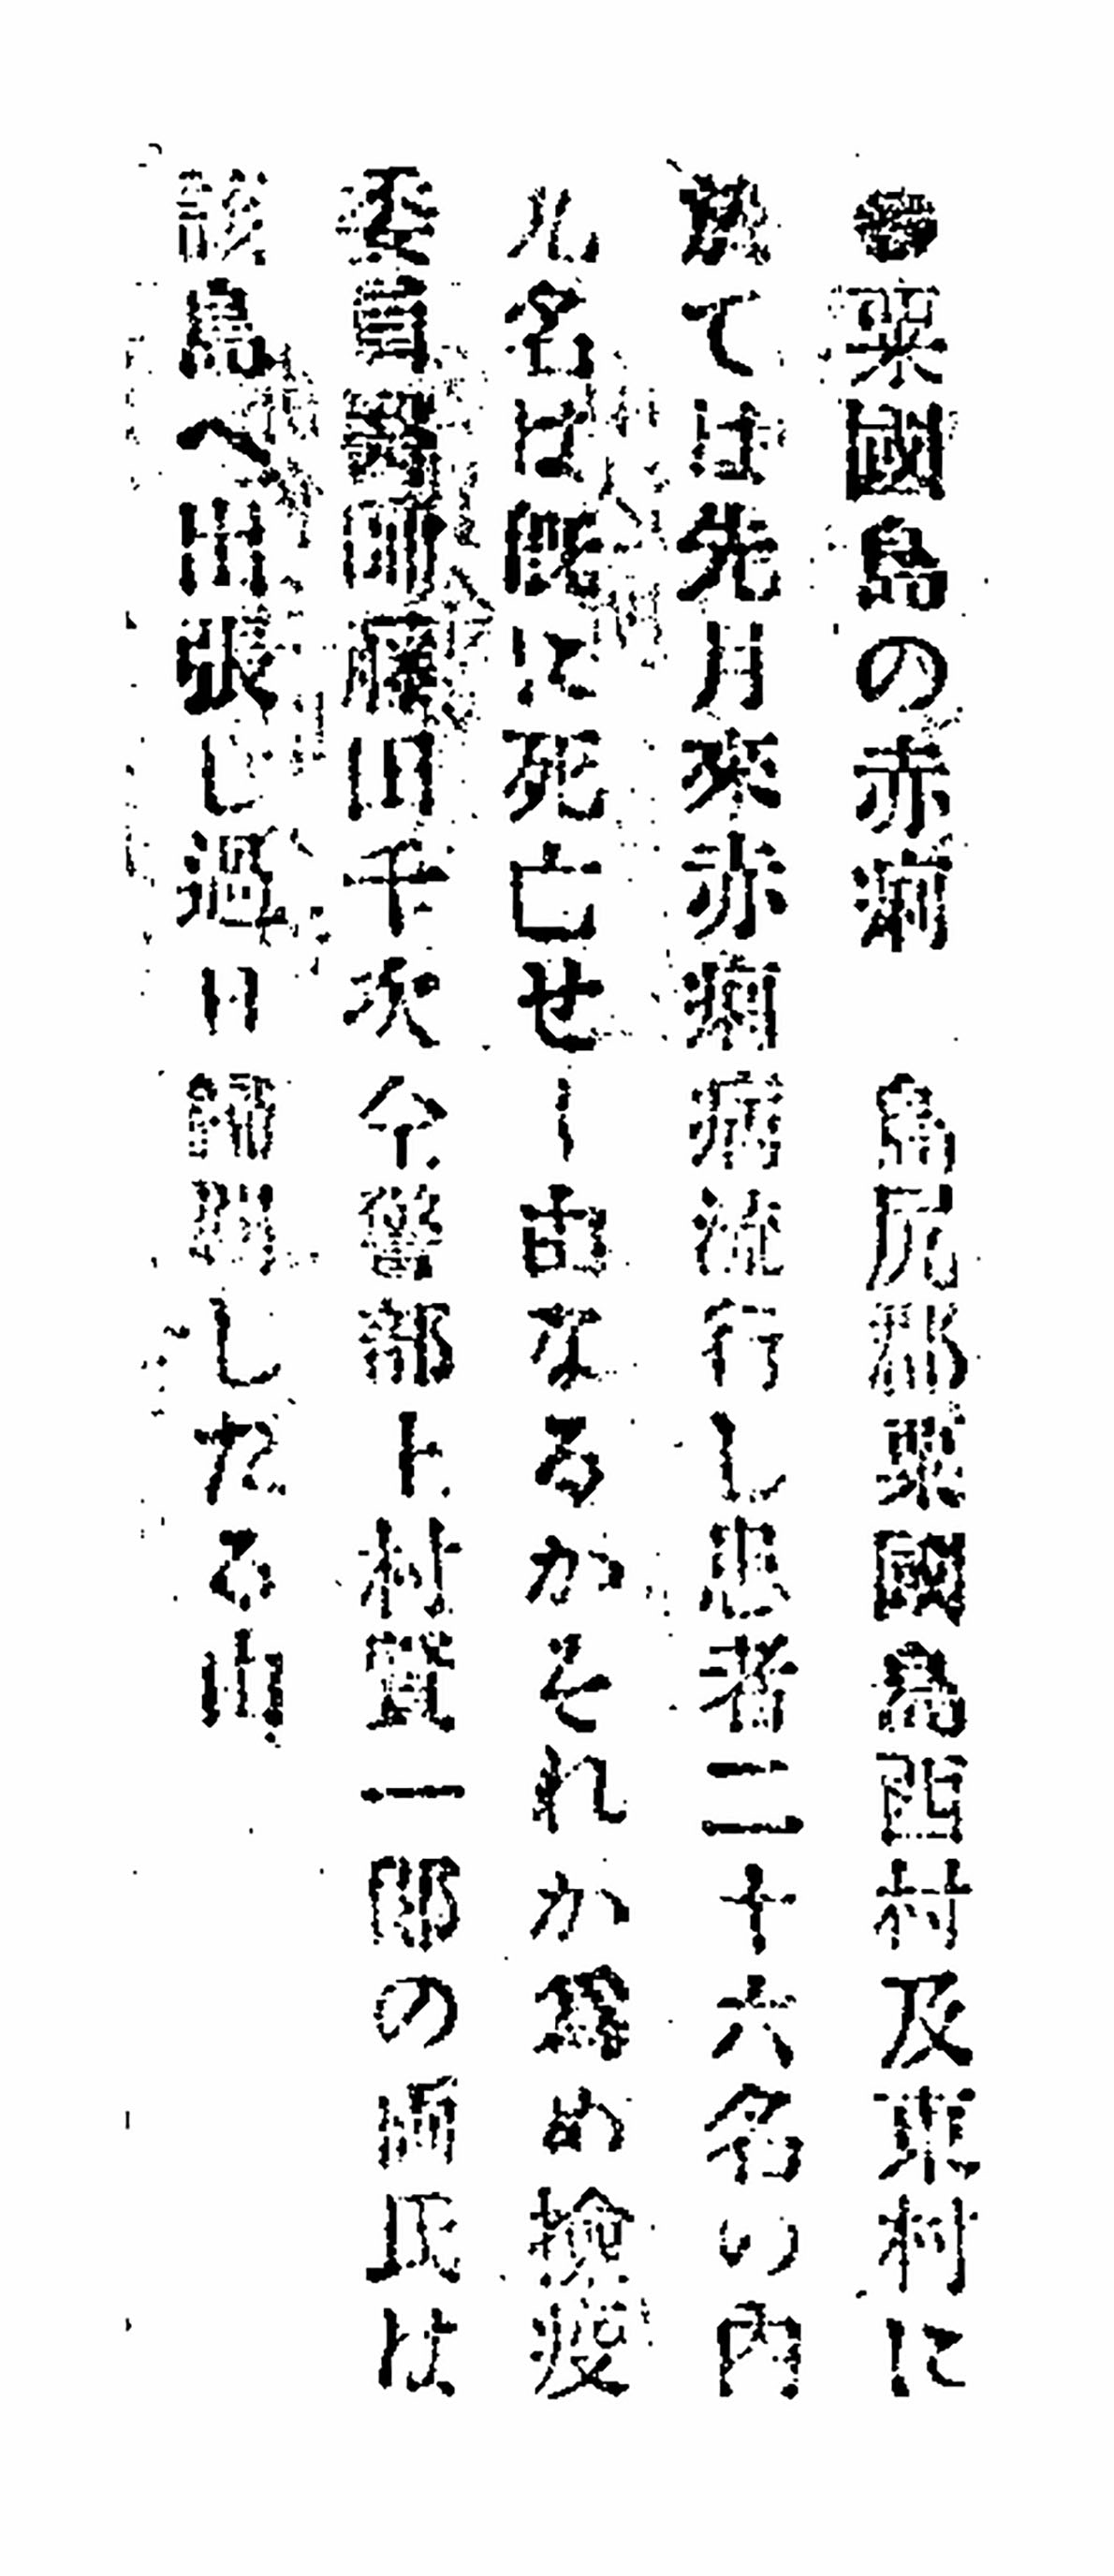 ●粟國島の赤痢　島尻郡粟國島西村及東村に
於ては先月來赤痢病流行し患者二十六名の内
九名は既に死亡せし由なるかそれか爲め檢疫
委員醫師藤田千次今警部上村賀一郎の両氏は
該島へ出張し過日歸那したる由